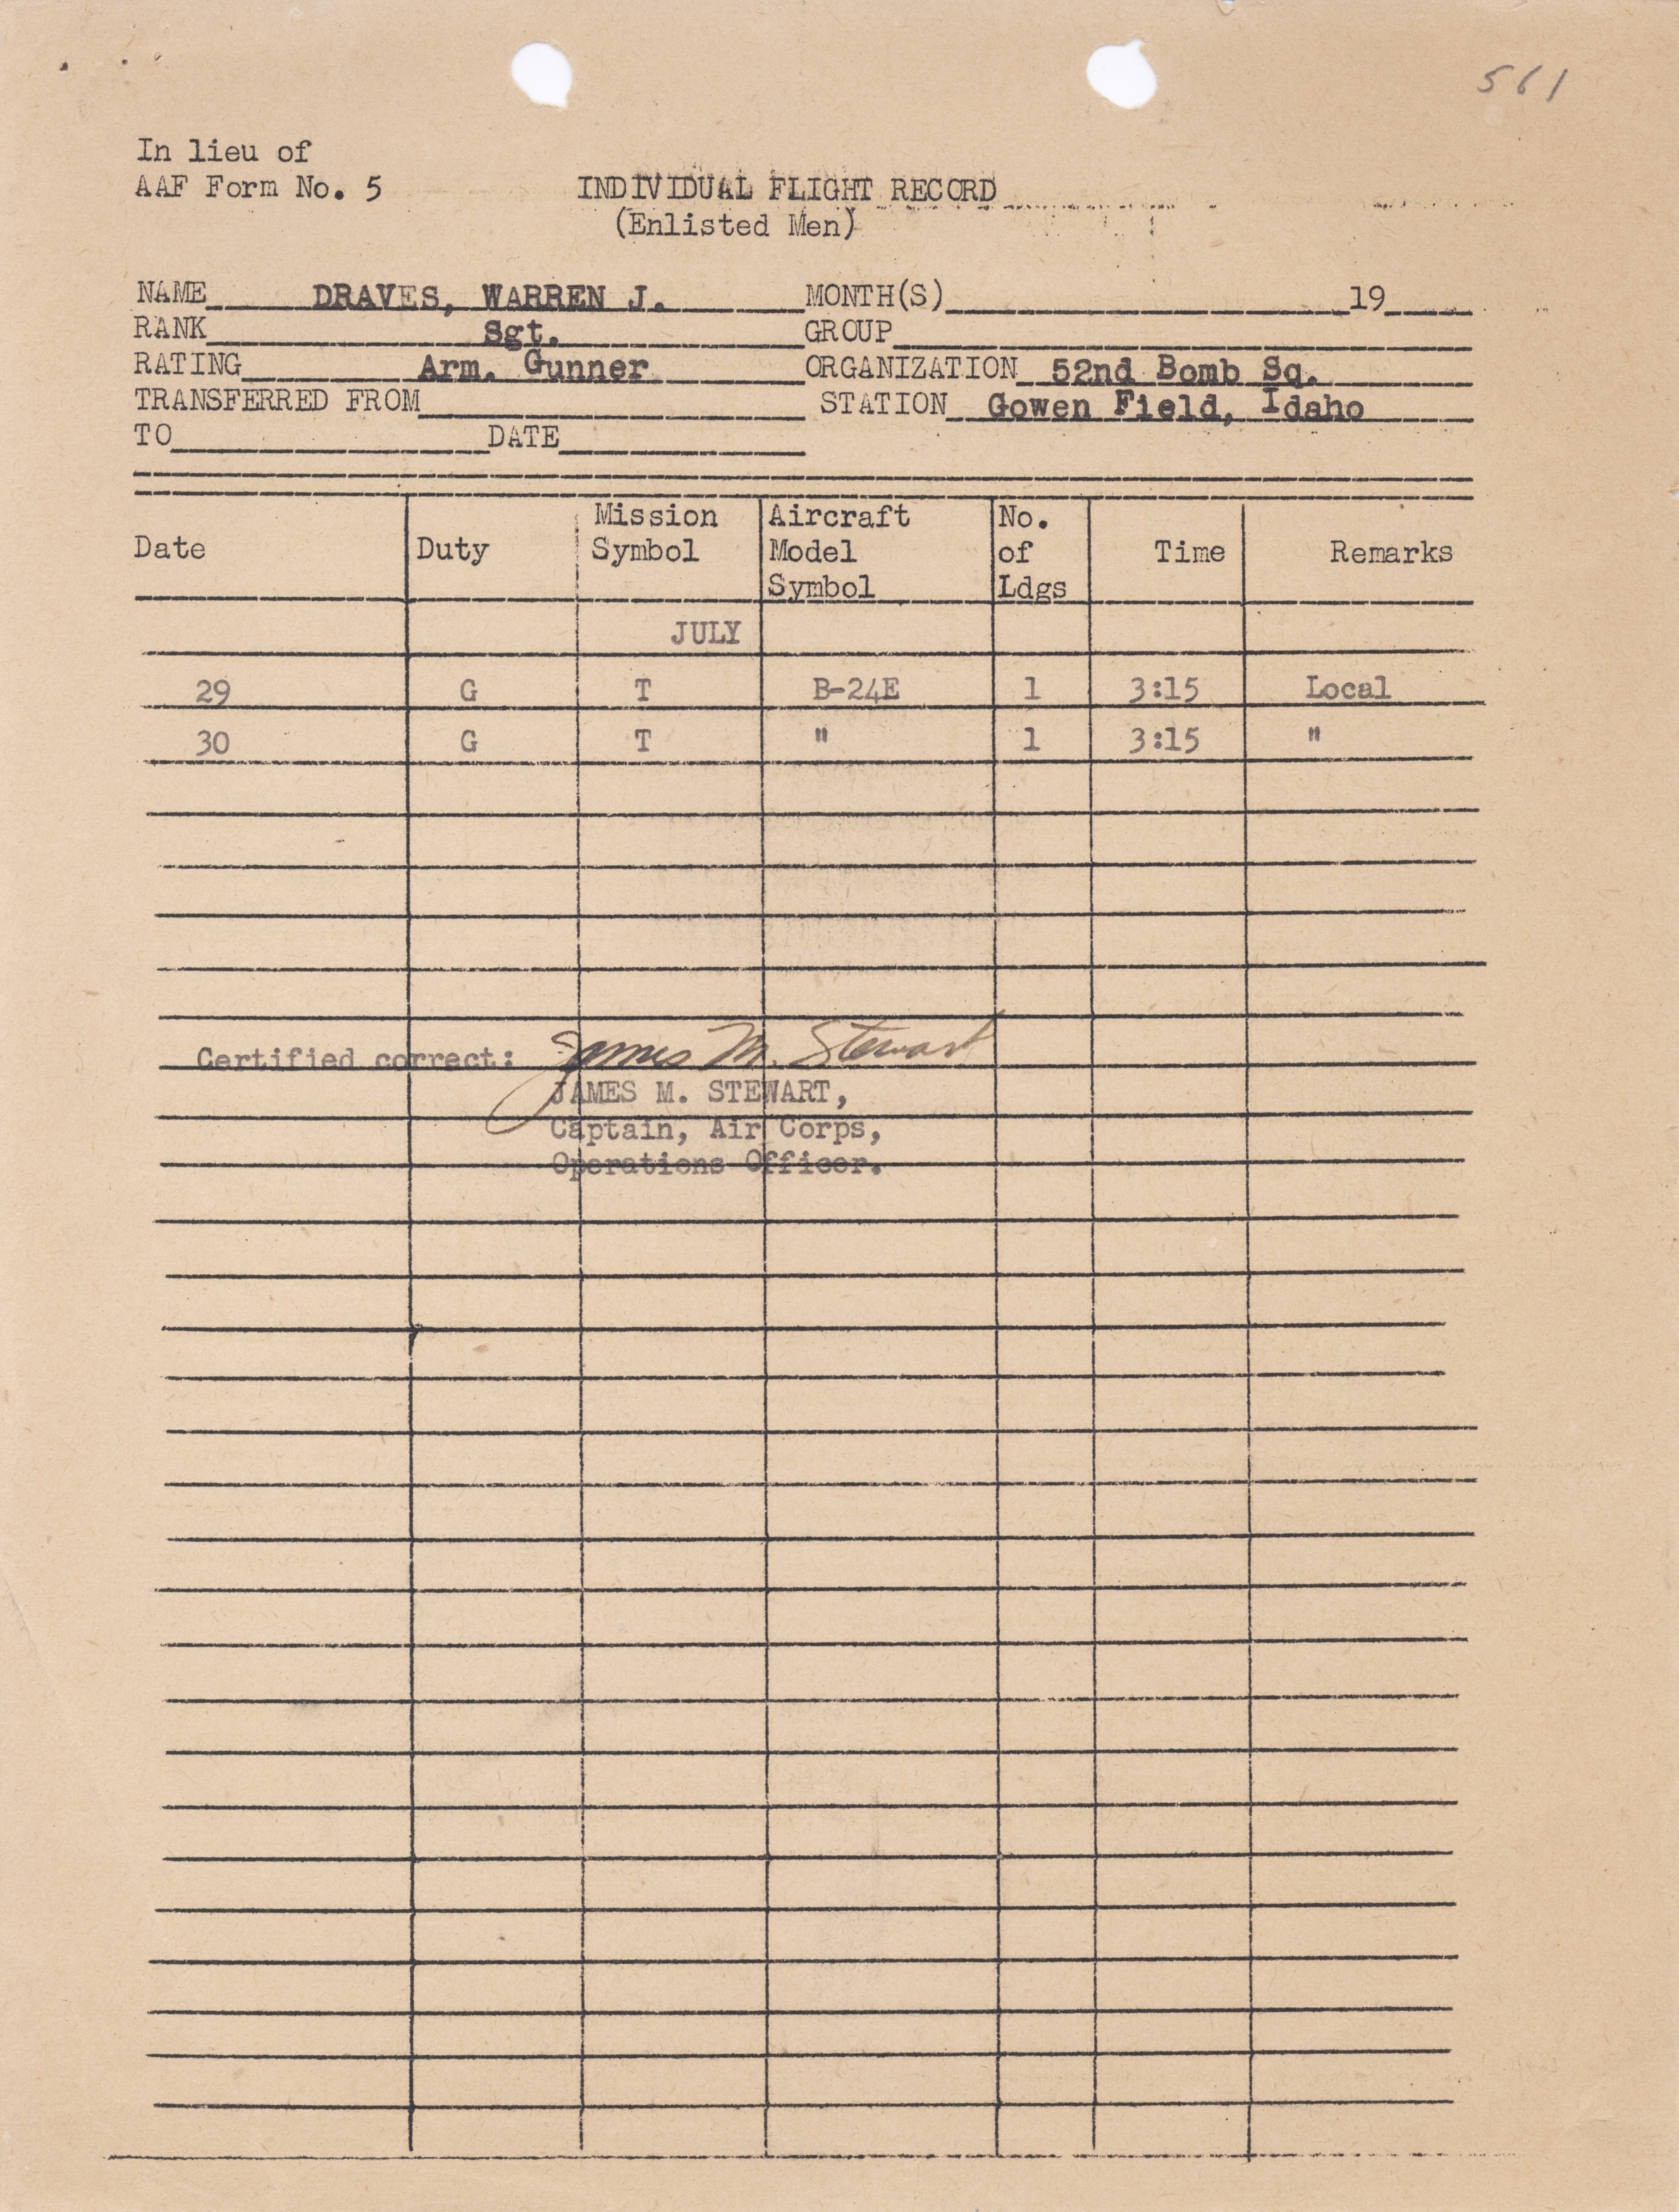 561
In lieu of
AAF Form No. 5
INDIVIDUAL FLIGHT RECORD
(Enlisted Men)
NAME DRAVES, WARREN J. MONTH(S) 19
RANK Sgt. GROUP
RATING Arm. Gunner ORGANIZATION 52nd Bomb Sq.
TRANSFERRED FROM STATION Gowen Field, Idaho
TO DATE
Date Duty Mission Symbol Aircraft Model Symbol No. of Ldgs Time Remarks
JULY
29 G T B-24E 1 3:15 Local
30 G T " 1 3:15 "
Certified correct: James M. Stewart
JAMES M. STEWART,
Captain, Air Corps,
Operations Officer.